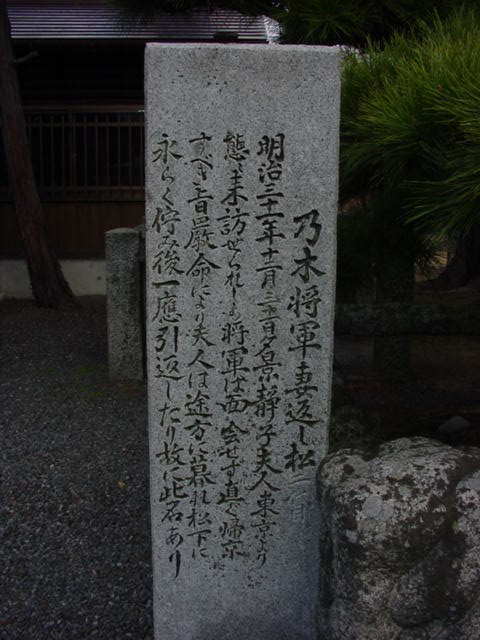 乃木將軍妻返し松
明治三十一年十二月三十一日夕景靜子夫人東京より
態々来訪せられしも將軍は面會せず直ぐ帰京
すべき旨嚴命により夫人は途方に暮れ松下に
永らく佇み後一應引返したり故に此石あり